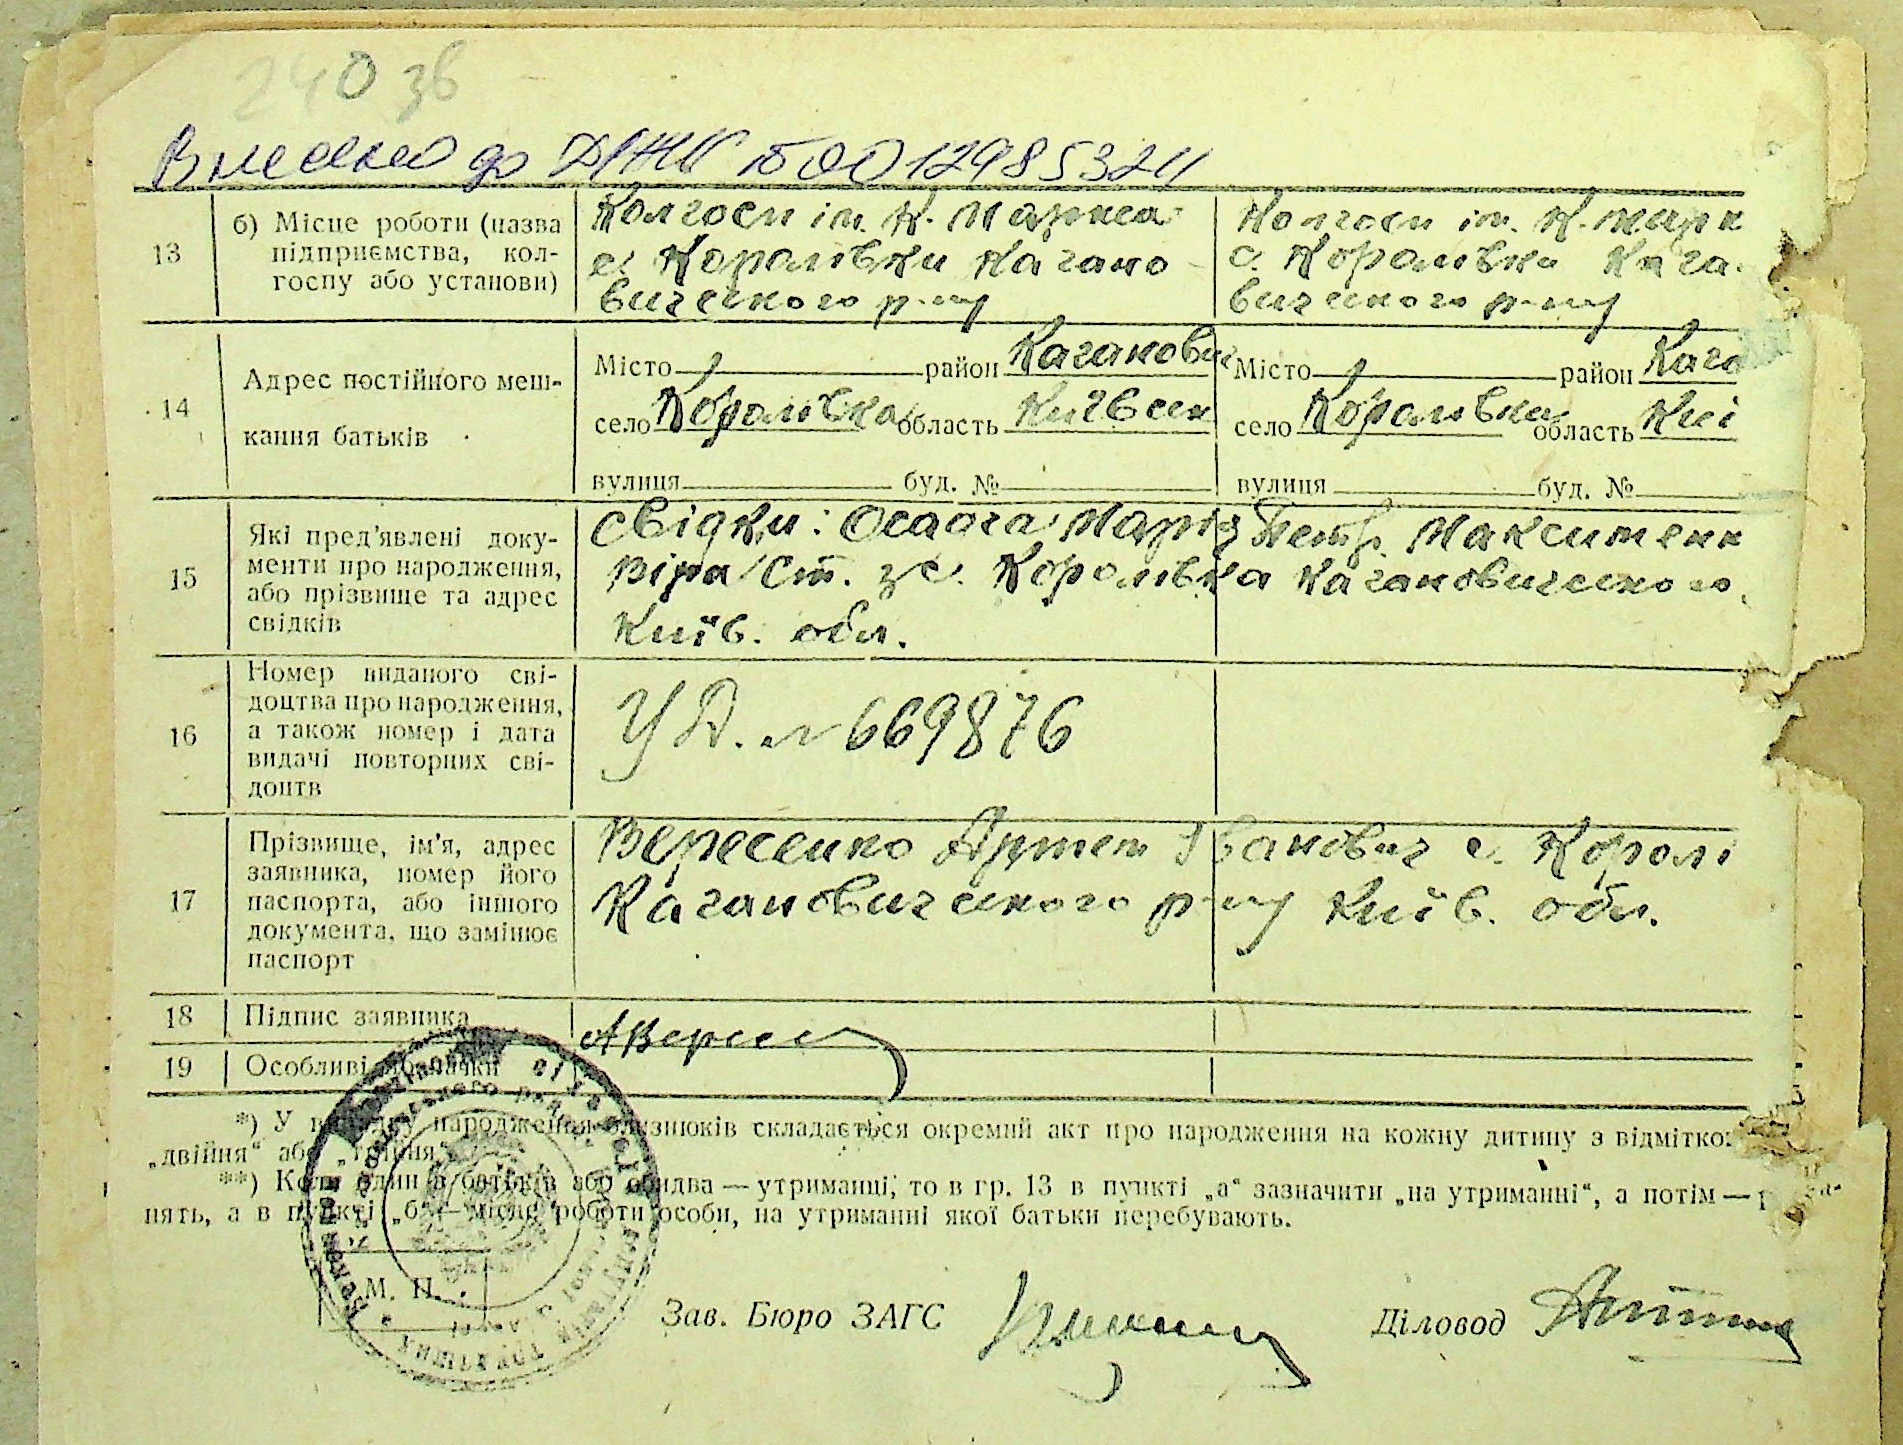 240 зв
Внесено до ДРАЦС 00012985324
13
б) Місце роботи (назва
підприємства, кол-
госпу або установи)
Колгосп ім. К. Маркса
с. Королівки Кагано-
вичського р-ну
Колгосп ім. К. Марк
с. Королівки Кага-
вичського р-ну
14
Адрес постійного меш-
кання батьків
Місто район Каганович
село Королівка область Київськ
вулиця буд. №
Місто район Кага
село Королівка область Киї
вулиця буд. №
15
Які пред'явлені доку-
менти про народження,
або прізвище та адрес
свідків
Свідки: Марія Петр. Максименк
Віра Ст. з с. Королівка Кагановичського
Київ. обл.
16
Номер виданого сві-
доцтва про народження,
а також номер і дата
видачі повторних сві-
доцтв
УД. № 669876
17
Прізвище, ім'я, адрес
заявника, номер його
паспорта, або іншого
документа, що замінює
паспорт
Вересенко Артем Іванович с. Королі
Кагановичського р-ну Київ. обл.
18
Підпис заявника
АВересе
19
Особливі позначки
*) У випадку народження близнюків складається окремий акт про народження на кожну дитину з відмітко
„двійня“ або „трійня“.
**) Коли один з батьків або обидва — утриманці, то в гр. 13 в пункті „а“ зазначити „на утриманні“, а потім —
нять, а в пункті „б“ — місце роботи особи, на утриманні якої батьки перебувають.
М. П.
Зав. Бюро ЗАГС
Діловод